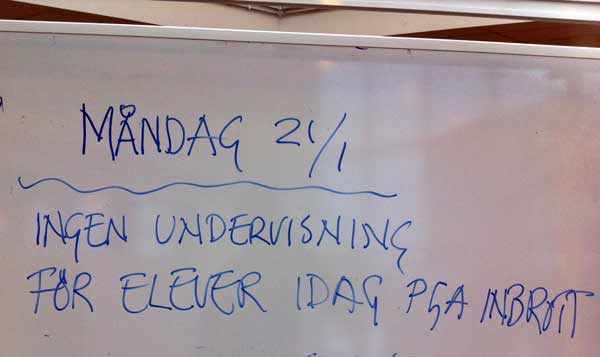 MÅNDAG 21/1
INGEN UNDERVISNING
FÖR ELEVER IDAG PGA INBROTT